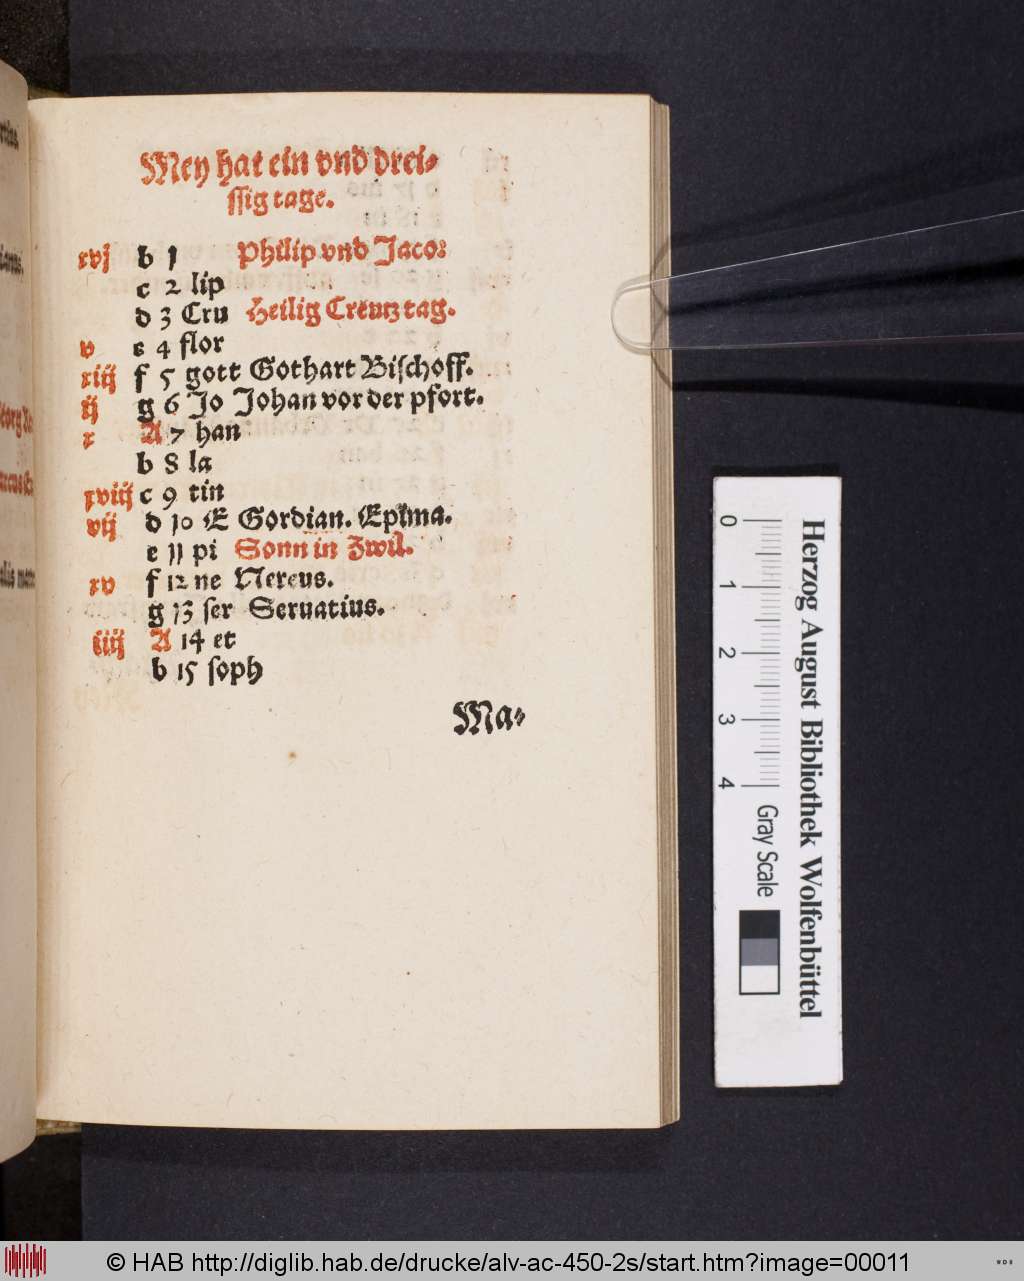 Mey hat ein vnd drei⸗
ſſig tage.
xvj b 1 Philip vnd Jaco:
c 2 lip
d 3 Cru Heilig Creutz tag.
v e 4 flor
xiij f 5 gott Gothart Biſchoff.
ij g 6 Jo Johan vor der pfort.
x A 7 han
b 8 la
xviij c 9 tin
vij d 10 E Gordian. Epima.
e 11 pi Sonn in Zwil.
xv f 12 ne Nereus.
g 13 ſer Seruatius.
iiij A 14 et
b 15 ſoph
Ma⸗
Herzog August Bibliothek Wolfenbüttel
0 1 2 3 4 Gray Scale
© HAB http://diglib.hab.de/drucke/alv-ac-450-2s/start.htm?image=00011